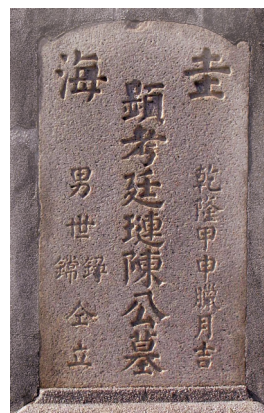 圭海
乾隆甲申臘月吉
顯考廷璉陳公墓
男世鐌鐺仝立